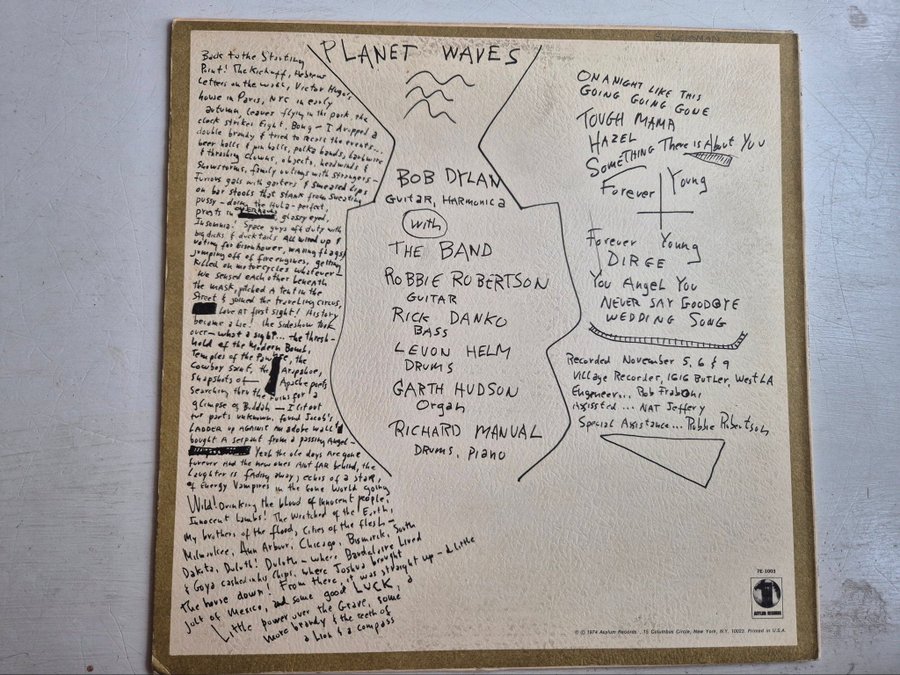 Back to the Starting
Point! The Kickoff, Hebrew
Letters on the wall, Victor Hugo's
house in Paris, NYC in early
autumn, leaves flying in the park, the
clock strikes Eight, Bong – I dropped a
double brandy & tried to recall the events...
beer halls & pin balls, polka bands, barbwire
& thrashing clowns, objects, headwinds &
snowstorms, family outings with strangers –
Furious gals with garters & smeared lips
on bar stools that stank from sweating
pussy – doing the Hula – perfect,
priests in overhauls, glassy eyed,
Insomnia! Space guys off duty with
big dicks & ducktails All wired up &
voting for Eisenhower, waving flags &
jumping off of fire engines, getting
killed on motorcycles whatever –
We sensed each other beneath
the mask, pitched a tent in the
Street & joined the traveling circus,
Love at first sight! History
became a Lie! the sideshow took
over – what a sight... the thresh-
hold of the Modern Bomb,
Temples of the Pawnee, the
Cowboy Saint, the Arapahoe,
Snapshots of Apache poets
searching thru the ruins for a
glimpse of Buddah – I lit out
for parts unknown, found Jacob's
LADDER up AGAINST AN adobe wall &
bought A serpent from a passing Angel –
Yeah the ole days Are gone
forever And the new ones Aint fAR behind, the
Laughter is fAding away, echos of a staR,
of Energy Vampires in the Gone World going
Wild! Drinking the blood of innocent people,
Innocent Lambs! The Wretched of the Earth,
My brothers of the flood, Cities of the flesh –
Milwaukee, Ann Arbor, Chicago, Bismarck, South
Dakota, Duluth! Duluth – where Baudelaire Lived
& Goya cashed in his Chips, where Joshua brought
the house down! From there, it was straight up – a Little
jolt of Mexico, and some good LUCK, a
Little power over the Grave, some
more brandy & the teeth of
a Lion & a compass
PLANET WAVES
BOB DYLAN
GUITAR, HARMONICA
With
THE BAND
ROBBIE ROBERTSON
GUITAR
RICK DANKO
BASS
LEVON HELM
DRUMS
GARTH HUDSON
Organ
RICHARD MANUAL
DRUMS, PIANO
ON A NIGHT LIKE THIS
GOING GOING GONE
TOUGH MAMA
HAZEL
SOMETHING There is About You
Forever Young
Forever Young
DIRGE
You Angel You
NEVER SAY GOODBYE
WEDDING SONG
Recorded November 5, 6 & 9
Village Recorder, 1616 BUTLER, West LA
Engeneer... Rob Fraboni
Assisted... NAT Jeffery
Special Assistance... Robbie Robertson
7E-1003
ASYLUM RECORDS
© ℗ 1974 Asylum Records . 15 Columbus Circle, New York, N.Y. 10023. Printed in U.S.A.